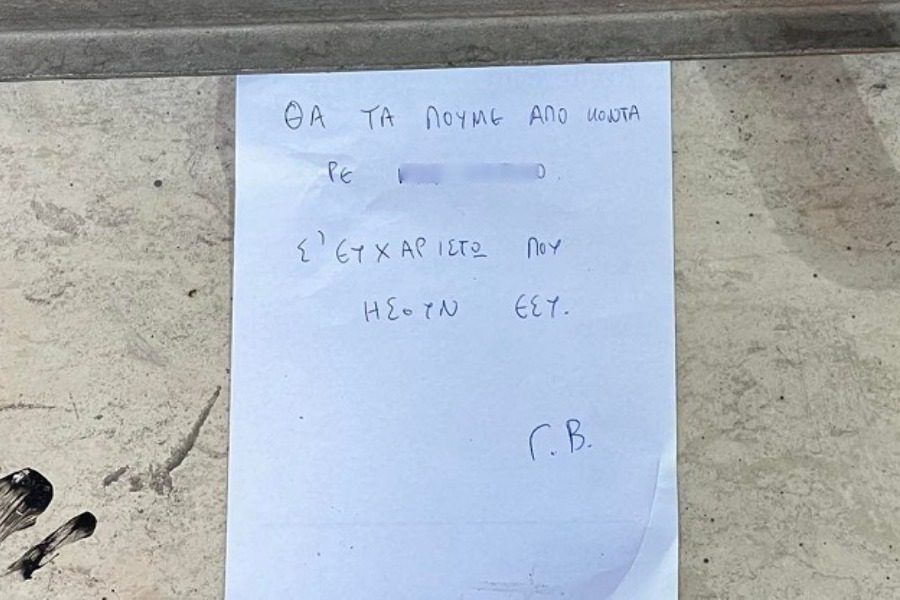 ΘΑ ΤΑ ΠΟΥΜΕ ΑΠΟ ΚΟΝΤΑ
ΡΕ
Σ' ΕΥΧΑΡΙΣΤΩ ΠΟΥ
ΗΣΟΥΝ ΕΣΥ.
Γ.Β.